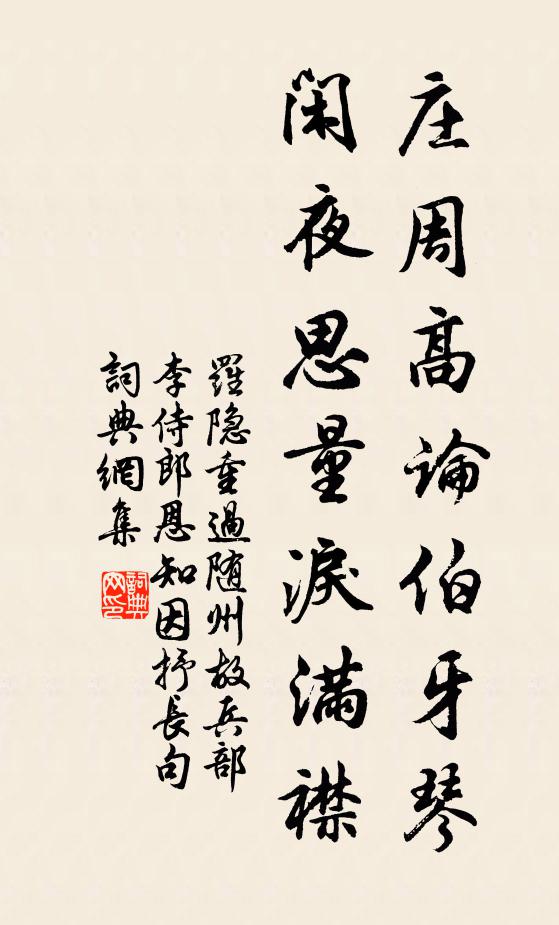 庄周高論伯牙琴
閑夜思量淚滿襟
羅隐重過随州故兵部
李侍郎恩知因抒長句
詞典網集
詞典网印